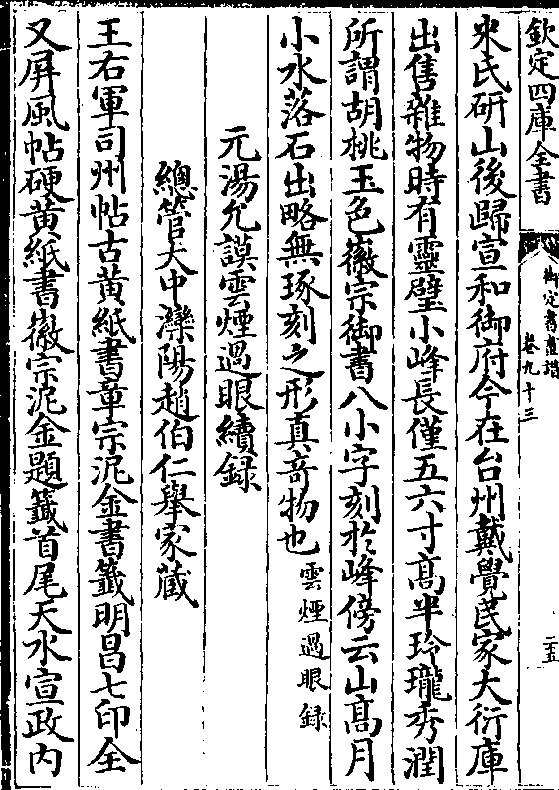 欽定四庫全書
御定書畫譜
卷九十三
二五
米氏研山後歸宣和御府今在台州戴覺民家大衍庫
出售雜物時有靈璧小峰長僅五六寸髙半玲瓏秀潤
所謂胡桃玉色徽宗御書八小字刻於峰傍云山髙月
小水落石出略無琢刻之形真奇物也雲煙過眼録
元湯允謨雲煙過眼續録
總管大中灤陽趙伯仁舉家藏
王右軍司州帖古黄紙書章宗泥金書籖明昌七印全
又屏風帖硬黄紙書徽宗泥金題籖首尾天水宣政内